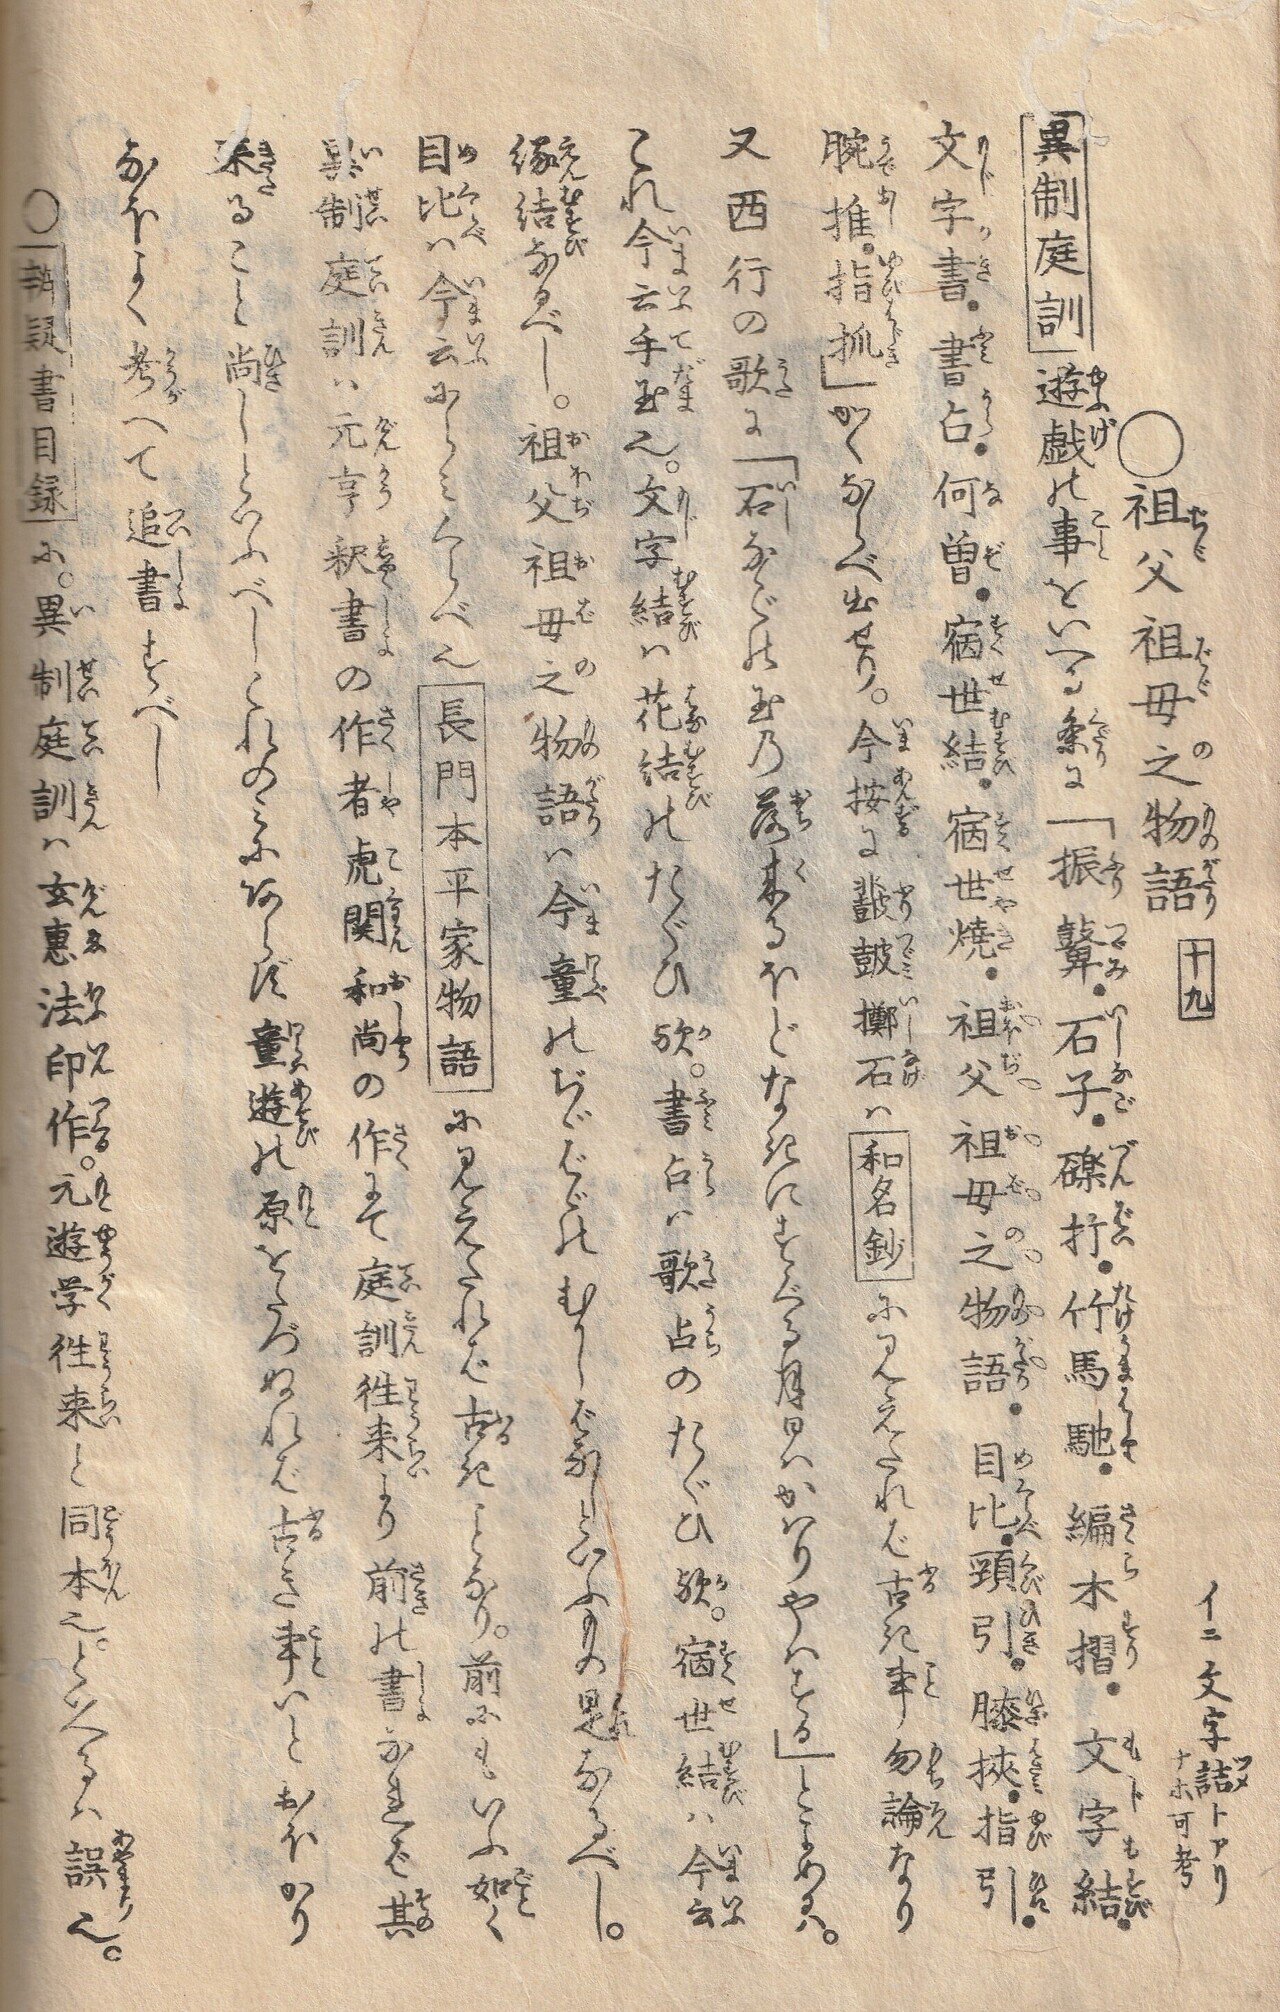 ○祖父祖母之物語 十九
イニ文字詰トアリ
ナホ可考
異制庭訓 遊戯の事をいへる条に「振鼙・石子・礫打・竹馬馳・編木摺・文字結・
文字書・書占・何曽・宿世結・宿世焼・祖父祖母之物語・目比・頸引・膝挾・指引・
腕推・指抓」かくならべ出せり。今按に 鼓 擲石ハ 和名鈔 に見えたれば古き事勿論なり
又西行の歌に「石なごの玉乃落来るほどなきにすぐる月日ハかはりやはする」とよめるハ。
これ今云手玉也。文字結ハ花結のたぐひ歟。書占ハ歌占のたぐひ歟。宿世結ハ今云
縁結なるべし。祖父祖母之物語ハ今童のぢゞばゞのむかしばなしといふもの是なるべし。
目比ハ今云にらみくらべ也 長門本平家物語 に見えたれば古きことなり。前にもいふ如く
異制庭訓ハ元亨釈書の作者虎関和尚の作にて庭訓往来より前の書なれば其
来ること尚しといふべしこれのみにあらず童遊の原をたづぬれば古き事いとおほかり
なほよく考へて追書すべし
○ 疑書目録 に。異制庭訓ハ玄恵法印作。元遊学往来と同本也。といへるハ誤也。